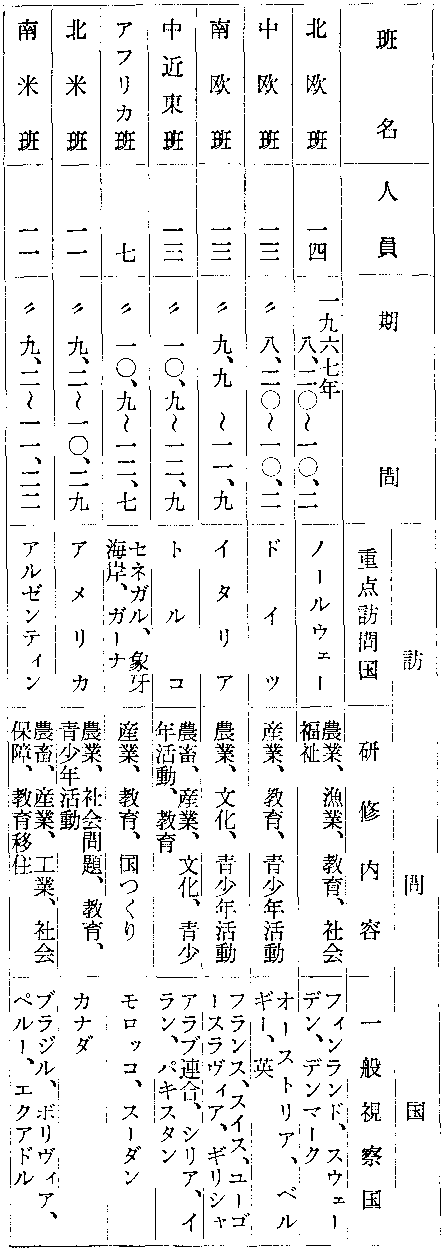 訪問国
班名 人員 期間 重点訪問国 研修内容 一般視察国
北欧班 一四 一九六七年
八、二〇〜一〇、二 ノールウェー 農業、漁業、教育、社会
福祉 フィンランド、スウェー
デン、デンマーク
中欧班 一三 〃 八、二〇〜一〇、二 ドイツ 産業、教育、青少年活動 オーストリア、ベル
ギー、英
南欧班 一三 〃 九、九〜一一、九 イタリア 農業、文化、青少年活動 フランス、スイス、ユーゴ
ースラヴィア、ギリシャ
中近東班 一三 〃 一〇、九〜一二、九 トルコ 農畜、産業、文化、青少
年活動、教育 アラブ連合、シリア、イ
ラン、パキスタン
アフリカ班 七 〃 一〇、九〜一二、七 セネガル、象牙
海岸、ガーナ 産業、教育、国つくり モロッコ、スーダン
北米班 一一 〃 九、二〜一〇、二九 アメリカ 農業、社会問題、教育、
青少年活動 カナダ
南米班 一一 〃 九、二〜一一、二二 アルゼンティン 農畜、産業、工業、社会
保障、教育移住 ブラジル、ボリヴィア、
ペルー、エクアドル